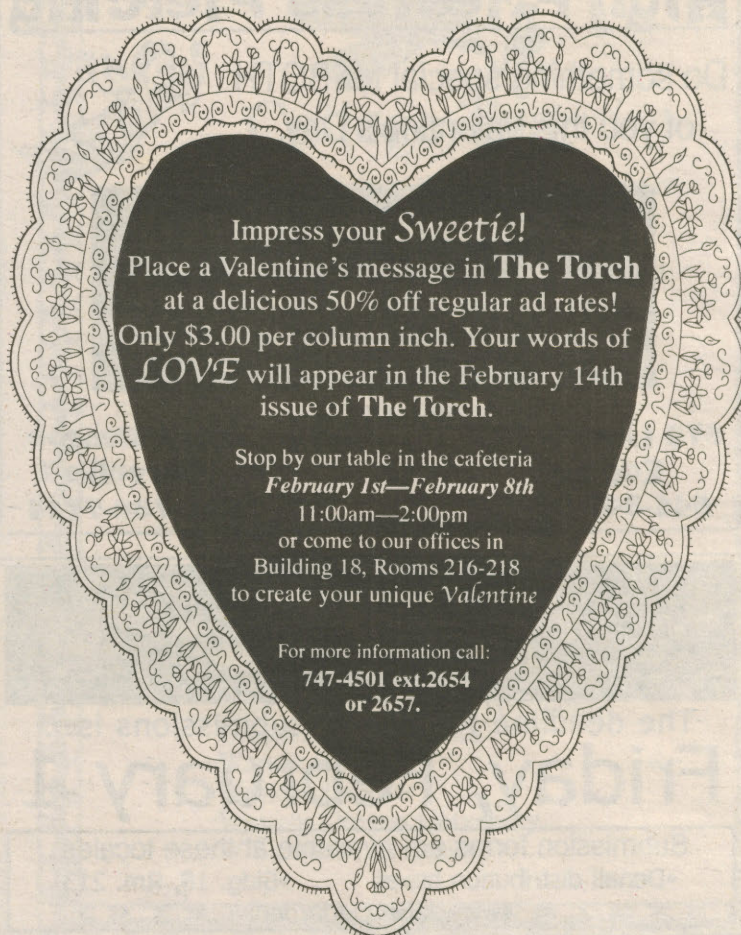 Impress your Sweetie!
Place a Valentine's message in The Torch
at a delicious 50% off regular ad rates!
Only $3.00 per column inch. Your words of
LOVE will appear in the February 14th
issue of The Torch.
Stop by our table in the cafeteria
February 1st—February 8th
11:00am—2:00pm
or come to our offices in
Building 18, Rooms 216-218
to create your unique Valentine
For more information call:
747-4501 ext.2654
or 2657.